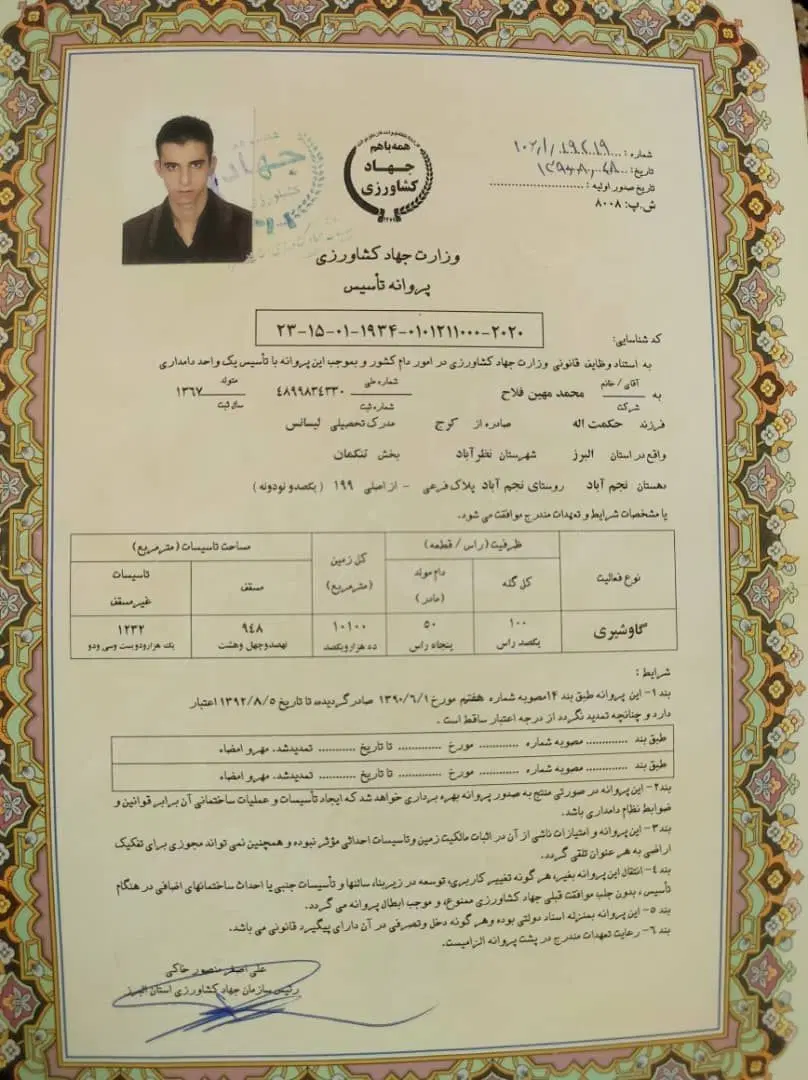 همه با هم
جهاد
کشاورزی
شماره :
تاریخ:
تاریخ صدور اولیه :
ش.پ: ۸۰۰۸
وزارت جهاد کشاورزی
پروانه تأسیس
کد شناسایی: ۲۳-۱۵-۰۱-۱۹۳۴-۰۱۰۱۲۱۱۰۰۰-۲۰۲۰
به استناد وظایف قانونی وزارت جهاد کشاورزی در امور دام کشور و بموجب این پروانه با تأسیس یک واحد دامداری
به آقای / خانم شرکت محمد مهین فلاح شماره ملی شماره ثبت ٤٨٩٩٨٣٤٣٣٠ متولد سال ثبت ۱۳٦۷
فرزند حکمت اله صادره از کرج مدرک تحصیلی لیسانس
واقع در استان البرز شهرستان نظرآباد بخش تنکمان
دهستان نجم آباد روستای نجم آباد پلاک فرعی - از اصلی ۱۹۹ (یکصدو نودونه)
با مشخصات شرایط و تعهدات مندرج موافقت می شود.
نوع فعالیت ظرفیت (راس / قطعه) کل زمین (مترمربع) مساحت تاسیسات (مترمربع)
کل گله دام مولد (مادر) مسقف تاسیسات غیرمسقف
گاوشیری ۱۰۰ ۵۰ ۱۰۱۰۰ ۹٤۸ ۱۲۳۲
یکصد راس پنجاه راس ده هزارویکصد نهصدوچهل وهشت یک هزارودویست وسی ودو
شرایط :
بند ۱- این پروانه طبق بند ۱۴مصوبه شماره هفتم مورخ ۱۳۹۰/٦/۱ صادر گردیده تا تاریخ ۱۳۹۲/۸/۵ اعتبار
دارد و چنانچه تمدید نگردد از درجه اعتبار ساقط است .
طبق بند ............. مصوبه شماره ............ مورخ ............. تا تاریخ ........... تمدیدشد. مهر و امضاء
طبق بند ............. مصوبه شماره ............ مورخ ............. تا تاریخ ........... تمدیدشد. مهر و امضاء
بند۲- این پروانه در صورتی منتج به صدور پروانه بهره برداری خواهد شد که ایجاد تأسیسات و عملیات ساختمانی آن برابر قوانین و
ضوابط نظام دامداری باشد.
بند ۳- این پروانه و امتیازات ناشی از آن در اثبات مالکیت زمین وتاسیسات احداثی مؤثر نبوده و همچنین نمی تواند مجوزی برای تفکیک
اراضی به هر عنوان تلقی گردد.
بند ٤- انتقال این پروانه بغیر، هر گونه تغییر کاربری، توسعه در زیربنا، سالنها و تأسیسات جنبی یا احداث ساختمانهای اضافی در هنگام
تأسیس ، بدون جلب موافقت قبلی جهاد کشاورزی ممنوع، و موجب ابطال پروانه می گردد.
بند ۵- این پروانه بمنزله اسناد دولتی بوده وهر گونه دخل وتصرفی در آن دارای پیگیرد قانونی می باشد.
بند ٦- رعایت تعهدات مندرج در پشت پروانه الزامیست.
علی اصغر منصور خاکی
رئیس سازمان جهاد کشاورزی استان البرز